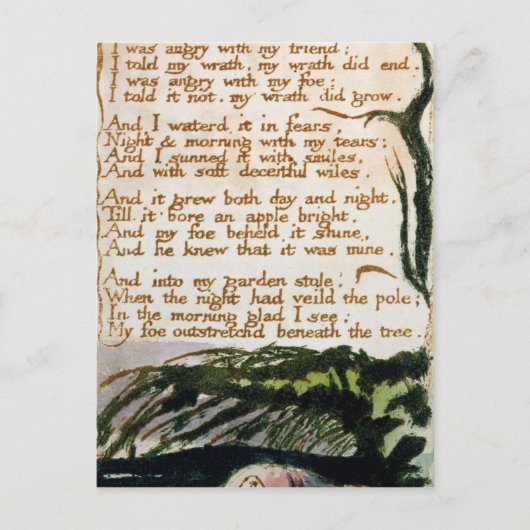 I was angry with my friend;
I told my wrath, my wrath did end.
I was angry with my foe:
I told it not, my wrath did grow.
And I waterd it in fears,
Night & morning with my tears:
And I sunned it with smiles,
And with soft deceitful wiles.
And it grew both day and night,
Till it bore an apple bright,
And my foe beheld it shine,
And he knew that it was mine.
And into my garden stole;
When the night had veild the pole;
In the morning glad I see:
My foe outstretchd beneath the tree.